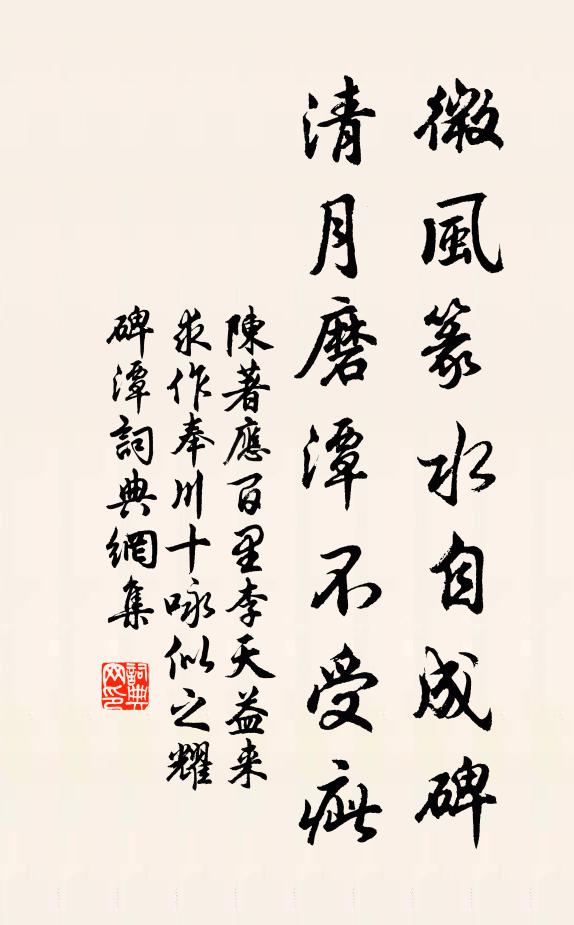 微風篆水自成碑
清月磨潭不受疵
陳著應百里李天益来
求作奉川十咏似之耀
碑潭詞典網集
詞典網印